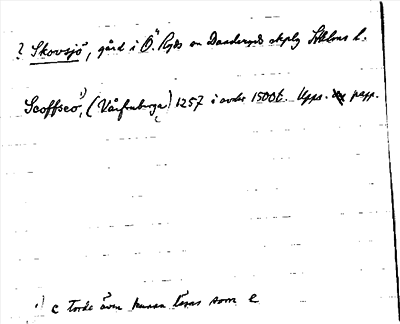 ? Skovsjö, gård i Ö. Ryds sn Danderyds skplg Sthlms l.
Scoffseo¹⁾, (Vårfruberga) 1257 i avskr 1500t. Upps. papp.
¹⁾ c torde även kunna läsas som e